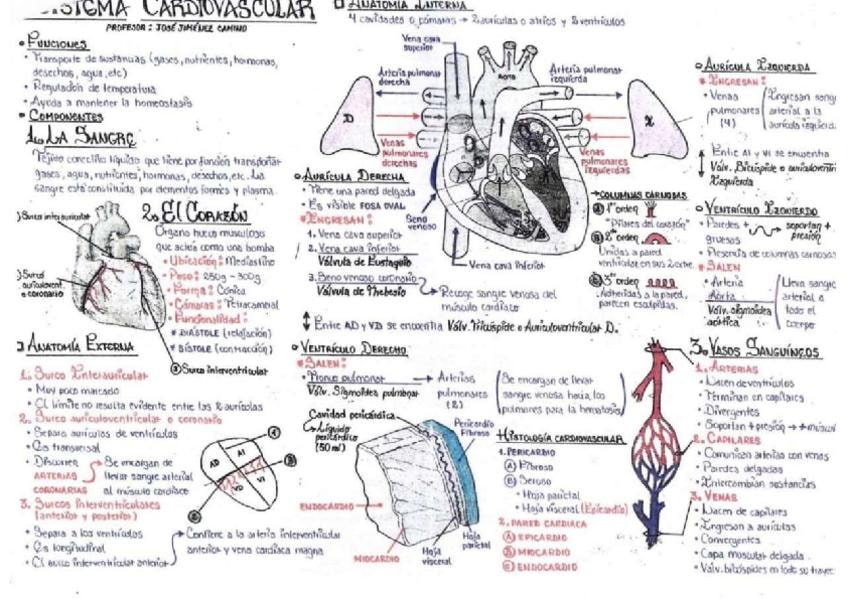 SISTEMA CARDIOVASCULAR
PROFESOR: JOSÉ JIMÉNEZ CAMINO
• FUNCIONES
• Transporte de sustancias (gases, nutrientes, hormonas,
desechos, agua, etc)
• Regulación de temperatura
• Ayuda a mantener la homeostasis
• COMPONENTES
1. LA SANGRE
Tejido conectivo líquido que tiene por función transportar
gases, agua, nutrientes, hormonas, desechos, etc. La
sangre está constituida por elementos formes y plasma.
Surco interauricular
Surco
auriculovent.
o coronario
2. EL CORAZÓN
Órgano hueco musculoso
que actúa como una bomba
• Ubicación: Mediastino
• Peso: 250g - 300g
• Forma: Cónica
• Cámaras: Tetracameral
• Funcionalidad:
* DIÁSTOLE (relajación)
* SÍSTOLE (contracción)
③ Surco interventricular
ANATOMÍA EXTERNA
1. Surco Interauricular
• Muy poco marcado
• El límite no resulta evidente entre las 2 aurículas
2. Surco auriculoventricular o coronario
• Separa aurículas de ventrículos
• Es transversal
• Discurren
ARTERIAS
CORONARIAS
Se encargan de
llevar sangre arterial
al músculo cardiaco
3. Surcos interventriculares
(anterior y posterior)
• Separa a los ventrículos
• Es longitudinal
• El surco interventricular anterior
Contiene a la arteria interventricular
anterior y vena cardiaca magna
AD
AI
VD
VI
ANATOMÍA INTERNA
4 cavidades o cámaras → 2 aurículas o atrios y 2 ventrículos
Vena cava
superior
Arteria pulmonar
derecha
AORTA
Arteria pulmonar
izquierda
D
I
Venas
pulmonares
derechas
Venas
pulmonares
izquierdas
Seno
venoso
Vena cava inferior
AURÍCULA DERECHA
• Tiene una pared delgada
• Es visible FOSA OVAL
* INGRESAN:
1. Vena cava superior
2. Vena cava inferior
Válvula de Eustaquio
3. Seno venoso coronario
Válvula de Thebesio
Recoge sangre venosa del
músculo cardiaco
Entre AD y VD se encuentra Válv. Tricúspide o Auriculoventricular D.
COLUMNAS CARNOSAS
1° orden
"Pilares del corazón"
2° orden
3° orden
Adheridas a la pared,
parecen esculpidas.
VENTRÍCULO DERECHO
* SALEN:
• Tronco pulmonar → Arterias
pulmonares
(2)
Válv. Sigmoidea pulmonar
Se encargan de llevar
sangre venosa hacia los
pulmones para la hematosis
Cavidad pericárdica
Líquido
pericárdico
(50 ml)
Pericardio
Fibroso
ENDOCARDIO
MIOCARDIO
Hoja
visceral
Hoja
parietal
HISTOLOGÍA CARDIOVASCULAR
1. PERICARDIO
Ⓐ Fibroso
Ⓑ Seroso
• Hoja parietal
• Hoja visceral (Epicardio)
2. PARED CARDIACA
Ⓐ EPICARDIO
Ⓑ MIOCARDIO
Ⓒ ENDOCARDIO
AURÍCULA IZQUIERDA
* INGRESAN:
• Venas
pulmonares
(4)
Ingresan sangre
arterial a la
aurícula
Entre AI y VI se encuentra
Válv. Bicúspide o
Izquierda
VENTRÍCULO IZQUIERDO
• Paredes +
gruesas
soportan +
presión
• Presencia de columnas carnosas
* SALEN
• Arteria
Aorta
Válv. sigmoidea
aórtica
Lleva sangre
arterial a
todo el
cuerpo
3. VASOS SANGUÍNEOS
1. ARTERIAS
• Nacen de ventrículos
• Terminan en capilares
• Divergentes
• Soportan + presión →
2. CAPILARES
• Comunican arterias con venas
• Paredes delgadas
• Intercambian sustancias
3. VENAS
• Nacen de capilares
• Ingresan a aurículas
• Convergentes
• Capa muscular delgada